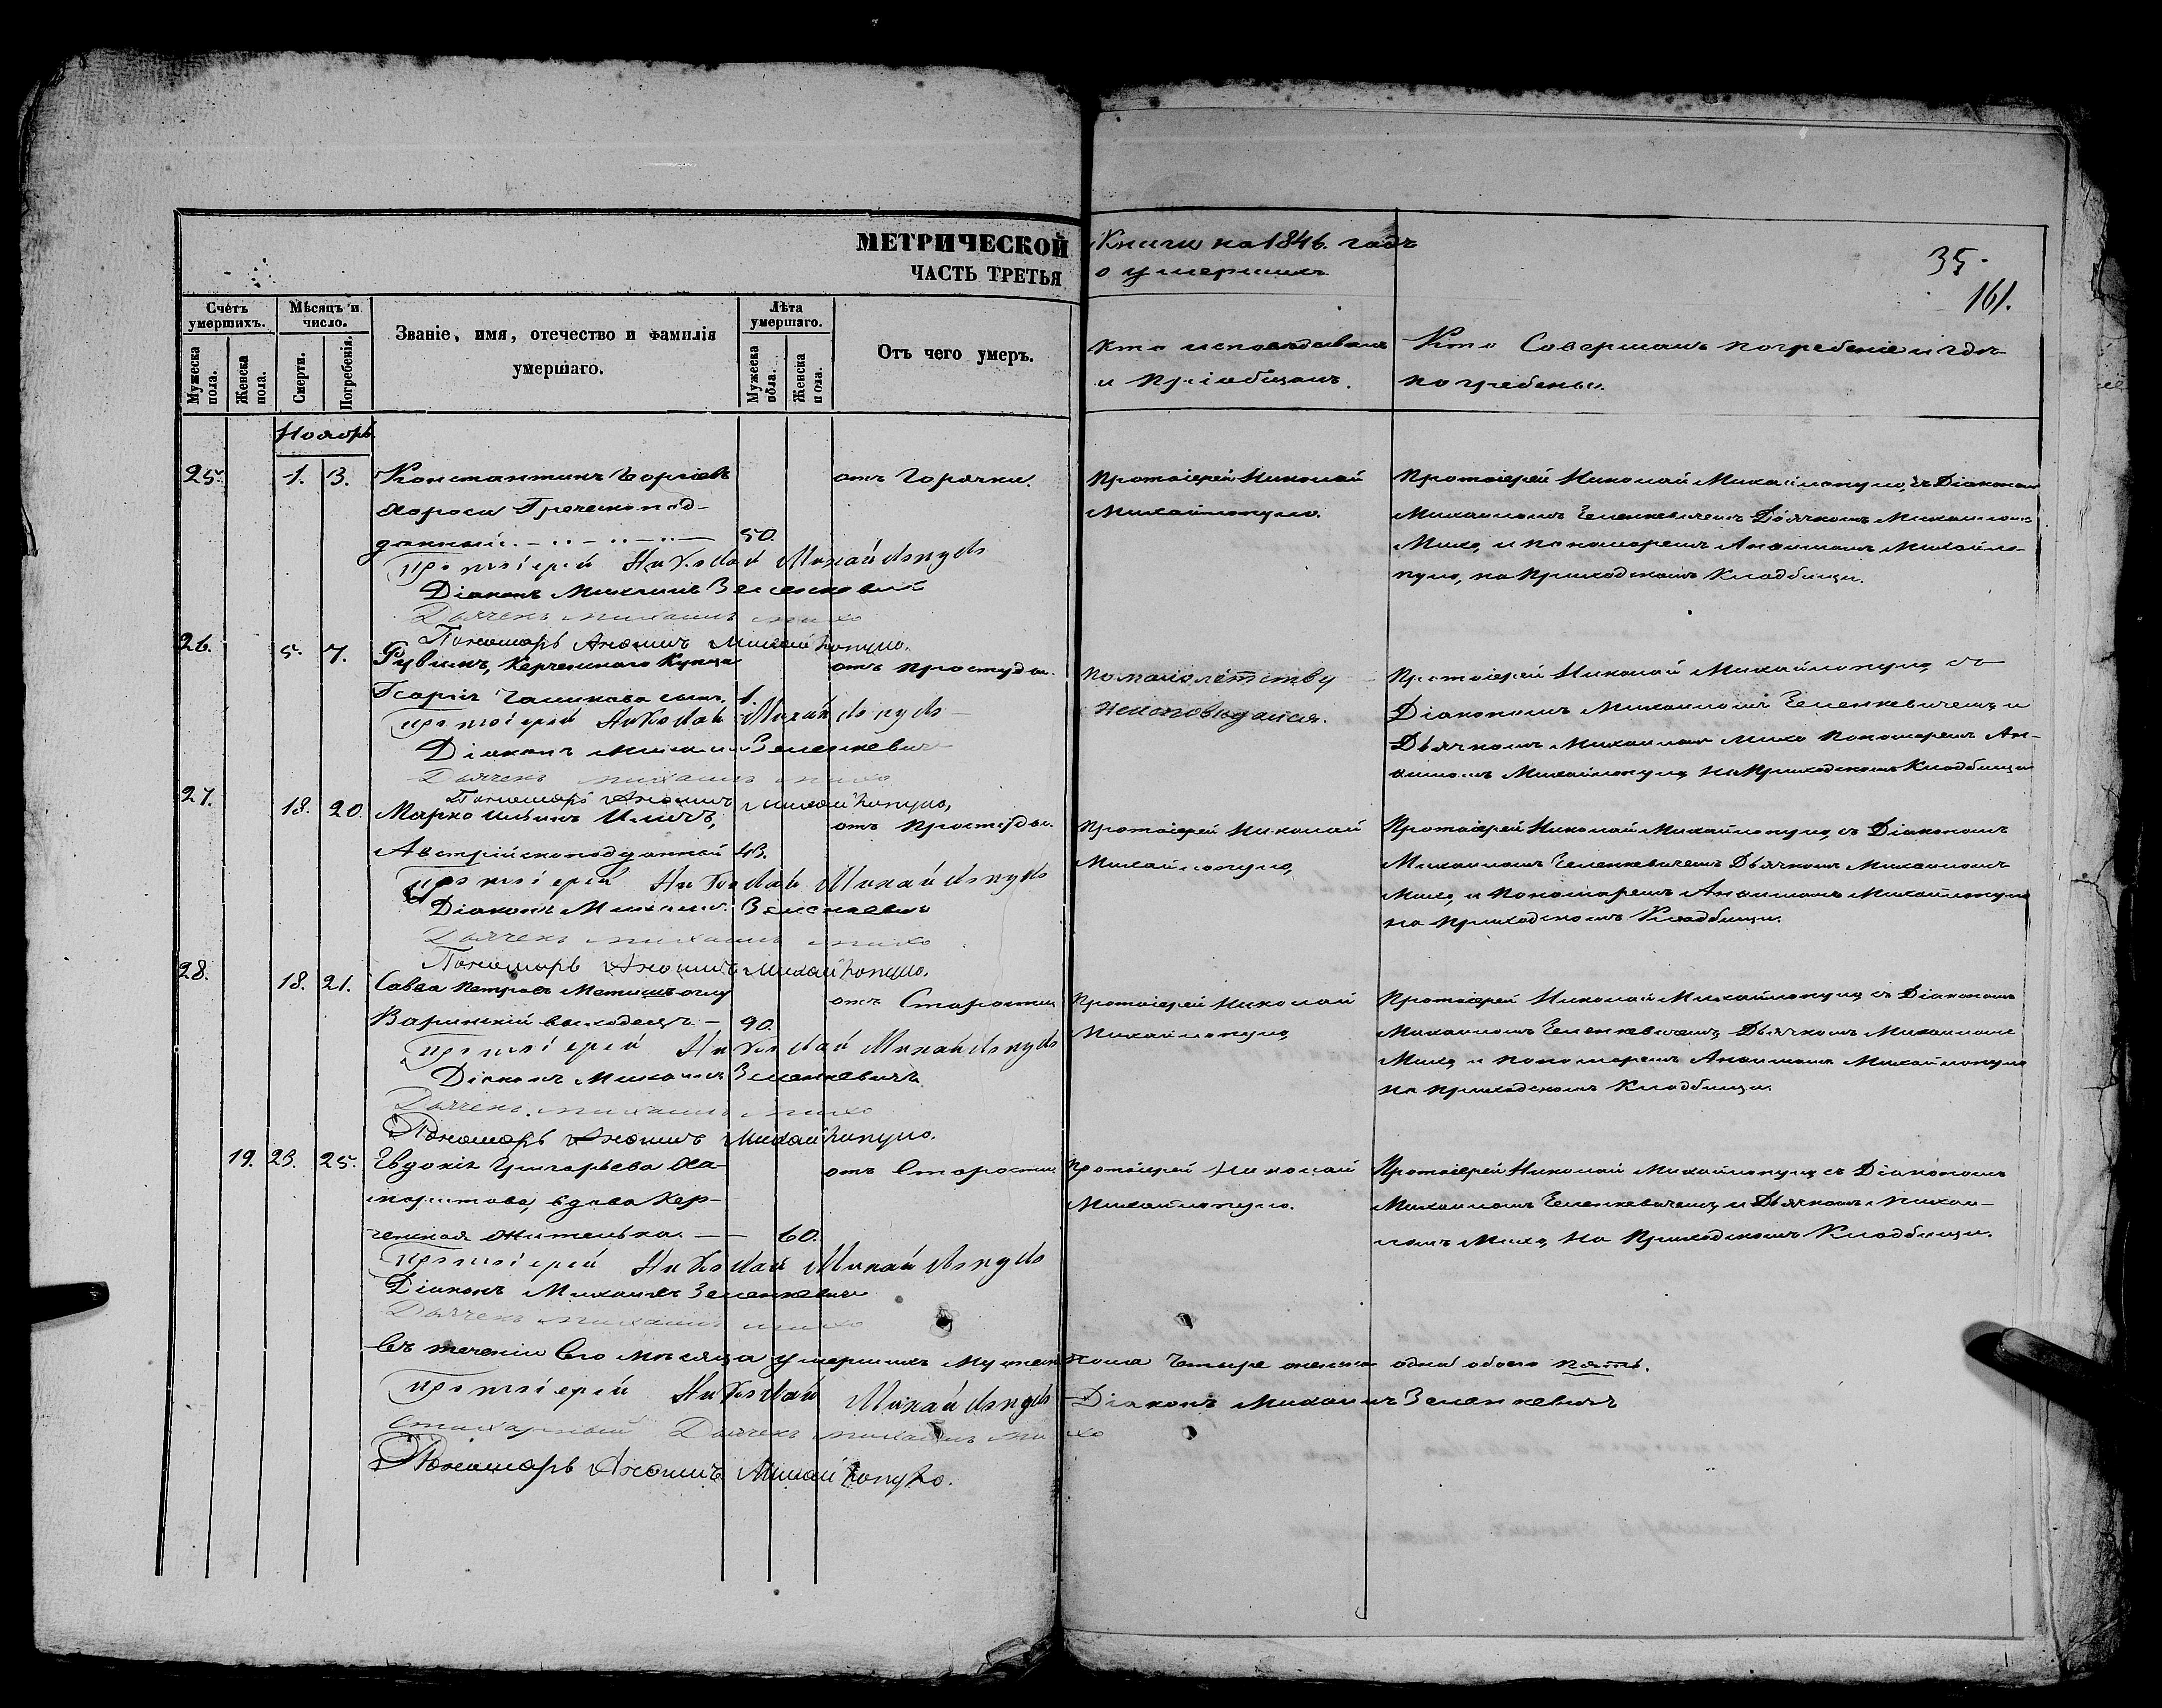 МЕТРИЧЕСКОЙ Книги на 1846. годъ
ЧАСТЬ ТРЕТЬЯ о умершихъ
35.
161.
Счетъ умершихъ.
Мужеска пола.
Женска пола.
Мѣсяцъ и число.
Смерти.
Погребенія.
Званіе, имя, отечество и фамилія
умершаго.
Лѣта умершаго.
Мужеска пола.
Женска пола.
Отъ чего умеръ.
Кто исповѣдывалъ
и Пріобщалъ.
Кто Совершалъ погребеніе и гдѣ
погребены.
Ноябрь
25. 1. 3. Константинъ
Греческопод-
данный. 50.
отъ Горячки.
Протоіерей Николай
Михайлопуло.
Протоіерей Николай Михайлопуло, съ Діакономъ
Михаиломъ Зеленкевичемъ Дьячкомъ Михаиломъ
Михо, и пономаремъ Михайло-
пуло, на Приходскомъ Кладбищи.
Протоіерей Николай Михайлопуло
Діаконъ Михаилъ
Дьячекъ Михаилъ Михо
Пономарь Михайлопуло.
26. 5. 7. Рувимъ, Керченскаго Купца
сынъ, 1.
отъ простуды.
По малолѣтству
неисповѣдался.
Протоіерей Николай Михайлопуло, съ
Діакономъ Михаиломъ Зеленкевичемъ и
Дьячкомъ Михаиломъ Михо Пономаремъ
Михайлопуло, на Приходскомъ Кладбищи
Протоіерей Николай Михайлопуло
Діаконъ Михаилъ Зеленкевичъ
Дьячекъ Михаилъ Михо
Пономарь Михайлопуло,
27. 18. 20. Марко
Австрійскоподданный 43.
отъ Простуды.
Протоіерей Николай
Михайлопуло,
Протоіерей Николай Михайлопуло, съ Діакономъ
Михаиломъ Зеленкевичемъ Дьячкомъ Михаиломъ
Михо, и Пономаремъ Михайлопуло
на Приходскомъ Кладбищи.
Протоіерей Николай Михайлопуло
Діаконъ Михаилъ Зеленкевичъ
Дьячекъ Михаилъ Михо
Пономарь Михайлопуло.
28. 18. 21. Савва Петровъ
выходецъ. 90.
отъ Старости
Протоіерей Николай
Михайлопуло,
Протоіерей Николай Михайлопуло, съ Діакономъ
Михаиломъ Зеленкевичемъ, Дьячкомъ Михаиломъ
Михо, и пономаремъ Михайлопуло
на приходскомъ Кладбищи.
Протоіерей Николай Михайлопуло
Діаконъ Михаилъ Зеленкевичъ
Дьячекъ Михаилъ Михо
Пономарь Михайлопуло.
19. 23. 25. Евдокія Григорьева
вдова Кер-
ченская жителька. 60.
отъ Старости
Протоіерей Николай
Михайлопуло.
Протоіерей Николай Михайлопуло, съ Діакономъ
Михаиломъ Зеленкевичемъ, и Дьячкомъ Михаи-
ломъ Михо, на Приходскомъ Кладбищи.
Протоіерей Николай Михайлопуло
Діаконъ Михаилъ Зеленкевичъ
Дьячекъ Михаилъ Михо
Въ теченіи Сего мѣсяца умершихъ Мужеска пола Четыре женска одна обоего пять.
Протоіерей Николай Михайлопуло Діаконъ Михаилъ Зеленкевичъ
Стихарный Дьячекъ Михаилъ Михо
Пономарь Михайлопуло.